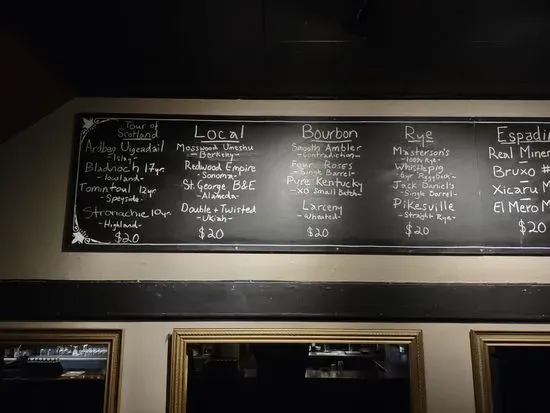 Tour of
Scotland
Ardbeg Uigeadail
-Islay-
Bladnoch 17yr.
-lowland-
Tomintoul 12yr.
-Speyside-
Stronachie 10yr.
-Highland-
$20
Local
Mosswood Umeshu
-Berkeley-
Redwood Empire
-Sonoma-
St. George B&E
-Alameda-
Double + Twisted
-Ukiah-
$20
Bourbon
Smooth Ambler
-Contradiction-
Four Roses
-Single Barrel-
Pure Kentucky
-XO Small Batch-
Larceny
-Wheated-
$20
Rye
Masterson's
-100% Rye-
Whistlepig
Jack Daniel's
-Single Barrel-
Pikesville
-Straight Rye-
$20
Espadin
Real Miner
Bruxo #
Xicaru M
El Mero M
$20